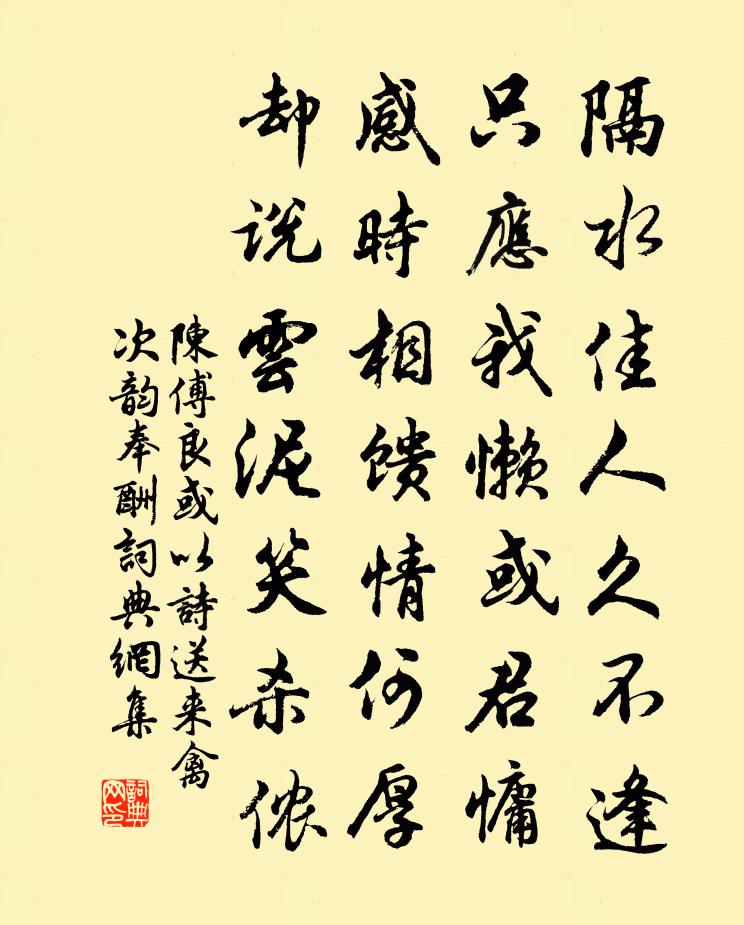 隔水佳人久不逢
只應我懶或君慵
感時相馈情何厚
却说雲泥笑杀侬
陳傅良或以詩送来禽
次韵奉酬詞典網集
詞典网印